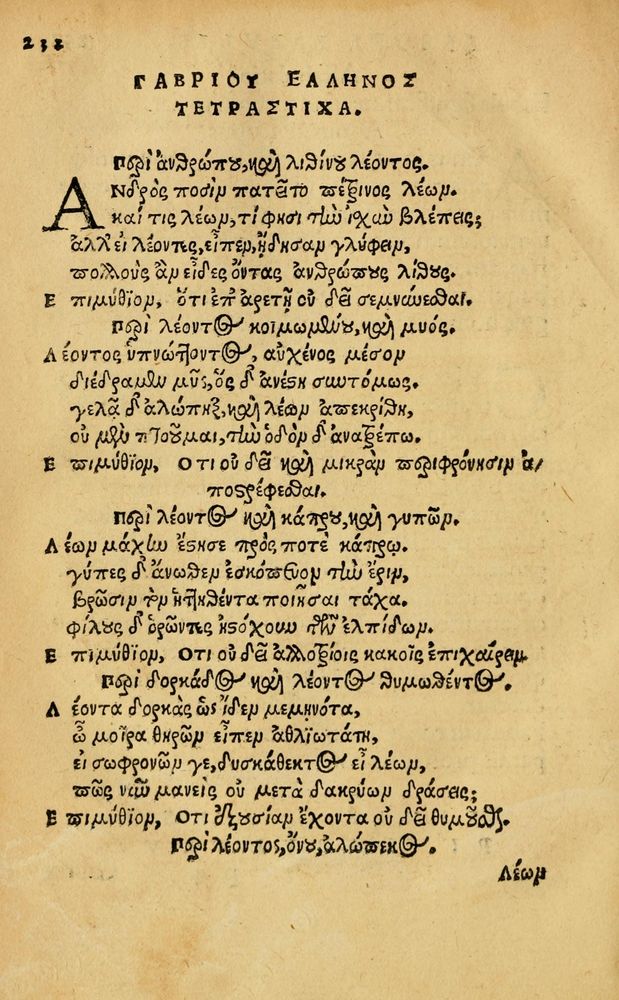 232
ΓΑΒΡΙΟΥ ΕΛΛΗΝΟΣ
ΤΕΤΡΑΣΤΙΧΑ.
Περὶ ἀνθρώπου, καὶ λιθίνου λέοντος.
Ανδρὸς ποσὶν πατεῖτο πέτρινος λέων.
καί τις λέων, τί φησι τὴν ἰχὺν βλέπεις;
ἀλλ' εἰ λέοντες, εἶπεν, ᾔδησαν γλύφειν,
πολλοὺς ἂν εἶδες ὄντας ἀνθρώπους λίθους.
Επιμύθιον, ὅτι ἐπ' ἀρετῇ οὐ δεῖ σεμνύνεσθαι.
Περὶ λέοντος κοιμωμένου, καὶ μυός.
Λέοντος ὑπνώττοντος, αὐχένος μέσον
διέδραμεν μῦς, ὃς δ' ἀνέστη συντόμως.
γελᾷ δ' ἀλώπηξ, καὶ λέων ἀπεκρίθη,
οὐ μῦν πτοοῦμαι, τὴν ὁδὸν δ' ἀνατρέπω.
Επιμύθιον, Οτι οὐ δεῖ καὶ μικρὰν περιφρόνησιν ἀ-
ποστρέφεσθαι.
Περὶ λέοντος καὶ κάπρου, καὶ γυπῶν.
Λέων μάχην ἔστησε πρός ποτε κάπρῳ.
γύπες δ' ἄνωθεν ἐσκόπευον τὴν ἔριν,
βρῶσιν τὸν ἡττηθέντα ποιῆσαι τάχα.
φίλους δ' ὁρῶντες ἠστόχουν τῶν ἐλπίδων.
Επιμύθιον, Οτι οὐ δεῖ ἀλλοτρίοις κακοῖς ἐπιχαίρειν.
Περὶ δορκάδος καὶ λέοντος θυμωθέντος.
Λέοντα δορκὰς ὡς ἴδεν μεμηνότα,
ὦ μοῖρα θηρῶν εἶπεν ἀθλιωτάτη,
εἰ σωφρονῶν γε, δυσκάθεκτος εἶ λέων,
πῶς νῦν μανεὶς οὐ μετὰ δακρύων δράσεις;
Επιμύθιον, Οτι ἐξουσίαν ἔχοντα οὐ δεῖ θυμοῦσθαι.
Περὶ λέοντος, ὄνου, ἀλώπεκος.
Λέων